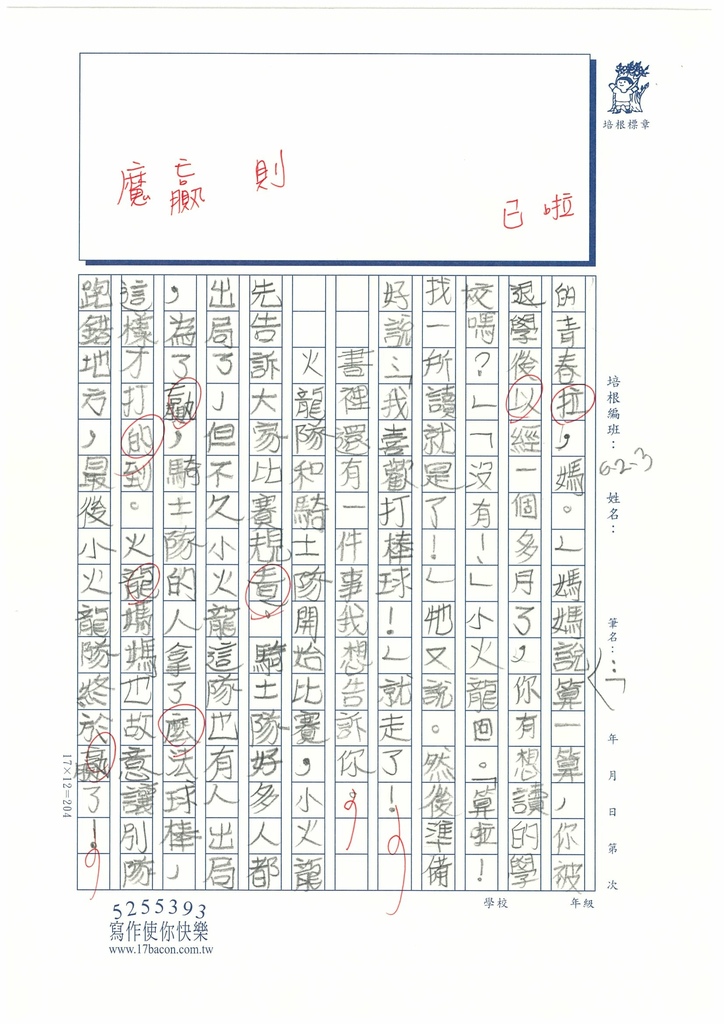 培根標章
魔 贏 則 已 啦
的青春拉,媽。」媽媽說算一算,你被
退學後以經一個多月了,你有想讀的學
校嗎?」「沒有!」小火龍回。「算啦!
找一所讀就是了!」牠又說。然後準備
好說:「我喜歡打棒球!」就走了!
書裡還有一件事我想告訴你
火龍隊和騎士隊開始比賽,小火龍
先告訴大家比賽規責。騎士隊好多人都
出局了,但不久小火龍這隊也有人出局
,為了贏,騎士隊的人拿了麼法球棒,
這樣才打的到。火龍媽媽也故意讓別隊
跑錯地方,最後小火龍隊終於贏了!
:「
培根編班:
6-2-3
姓名:
筆名:
年 月 日 第 次
學校 年級
17×12=204
5255393
寫作使你快樂
www.17bacon.com.tw